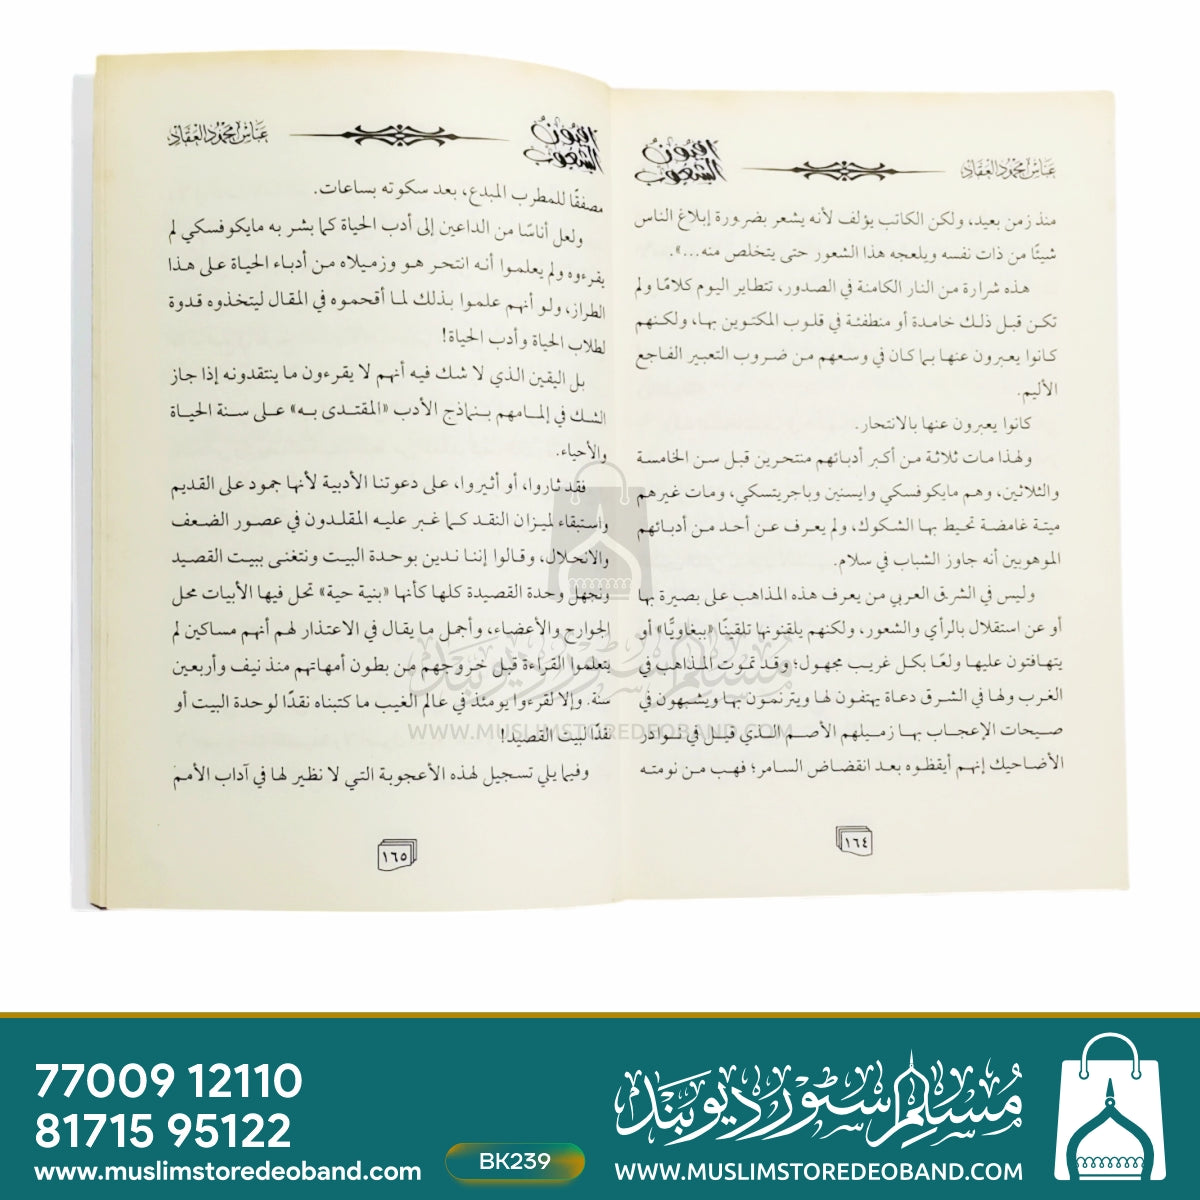 أفيون الشعوب
عباس محمود العقاد
منذ زمن بعيد، ولكن الكاتب يؤلف لأنه يشعر بضرورة إبلاغ الناس
شيئًا من ذات نفسه ويلعجه هذا الشعور حتى يتخلص منه...».
هذه شرارة من النار الكامنة في الصدور، تتطاير اليوم كلامًا ولم
تكن قبل ذلك خامدة أو منطفئة في قلوب المكتوين بها، ولكنهم
كانوا يعبرون عنها بما كان في وسعهم من ضروب التعبير الفاجع
الأليم.
كانوا يعبرون عنها بالانتحار.
ولهذا مات ثلاثة من أكبر أدبائهم منتحرين قبل سن الخامسة
والثلاثين، وهم مايكوفسكي وايسنين وباجريتسكي، ومات غيرهم
ميتة غامضة تحيط بها الشكوك، ولم يعرف عن أحد من أدبائهم
الموهوبين أنه جاوز الشباب في سلام.
وليس في الشرق العربي من يعرف هذه المذاهب على بصيرة بها
أو عن استقلال بالرأي والشعور، ولكنهم يلقنونها تلقينًا «ببغاويًّا» أو
يتهافتون عليها ولعًا بكل غريب مجهول؛ وقد تموت المذاهب في
الغرب ولها في الشرق دعاة يهتفون لها ويترنمون بها ويشبهون في
صيحات الإعجاب بها زميلهم الأصم الذي قيل في نوادر
الأضاحيك إنهم أيقظوه بعد انقضاض السامر؛ فهب من نومته
١٦٤
أفيون الشعوب
عباس محمود العقاد
مصفقًا للمطرب المبدع، بعد سكوته بساعات.
ولعل أناسًا من الداعين إلى أدب الحياة كما بشر به مايكوفسكي لم
يقرءوه ولم يعلموا أنه انتحر هو وزميلاه من أدباء الحياة على هذا
الطراز، ولو أنهم علموا بذلك لما أقحموه في المقال ليتخذوه قدوة
لطلاب الحياة وأدب الحياة!
بل اليقين الذي لا شك فيه أنهم لا يقرءون ما ينتقدونه إذا جاز
الشك في إلمامهم بنماذج الأدب «المقتدى به» على سنة الحياة
والأحياء.
فقد ثاروا، أو أثيروا، على دعوتنا الأدبية لأنها جمود على القديم
واستبقاء لميزان النقد كما غبر عليه المقلدون في عصور الضعف
والانحلال، وقالوا إننا ندين بوحدة البيت ونتغنى ببيت القصيد
ونجهل وحدة القصيدة كلها كأنها «بنية حية» تحل فيها الأبيات محل
الجوارح والأعضاء، وأجمل ما يقال في الاعتذار لهم أنهم مساكين لم
يتعلموا القراءة قبل خروجهم من بطون أمهاتهم منذ نيف وأربعين
سنة. وإلا لقرءوا يومئذ في عالم الغيب ما كتبناه نقدًا لوحدة البيت أو
نقدًا لبيت القصيد!
وفيما يلي تسجيل لهذه الأعجوبة التي لا نظير لها في آداب الأمم
١٦٥
مسلم سٹور دیوبند
WWW.MUSLIMSTOREDEOBAND.COM
77009 12110
81715 95122
www.muslimstoredeoband.com
BK239
مسلم سٹور دیوبند
WWW.MUSLIMSTOREDEOBAND.COM